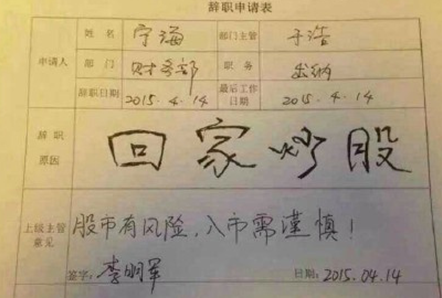 辞职申请表
姓名 宁海 部门主管 于浩
申请人 部门 财务部 职务 出纳
辞职日期 2015.4.14 最后工作日期 2015.4.14
辞职原因 回家炒股
上级主管意见 股市有风险，入市需谨慎！
签字：李明军 日期：2015.04.14